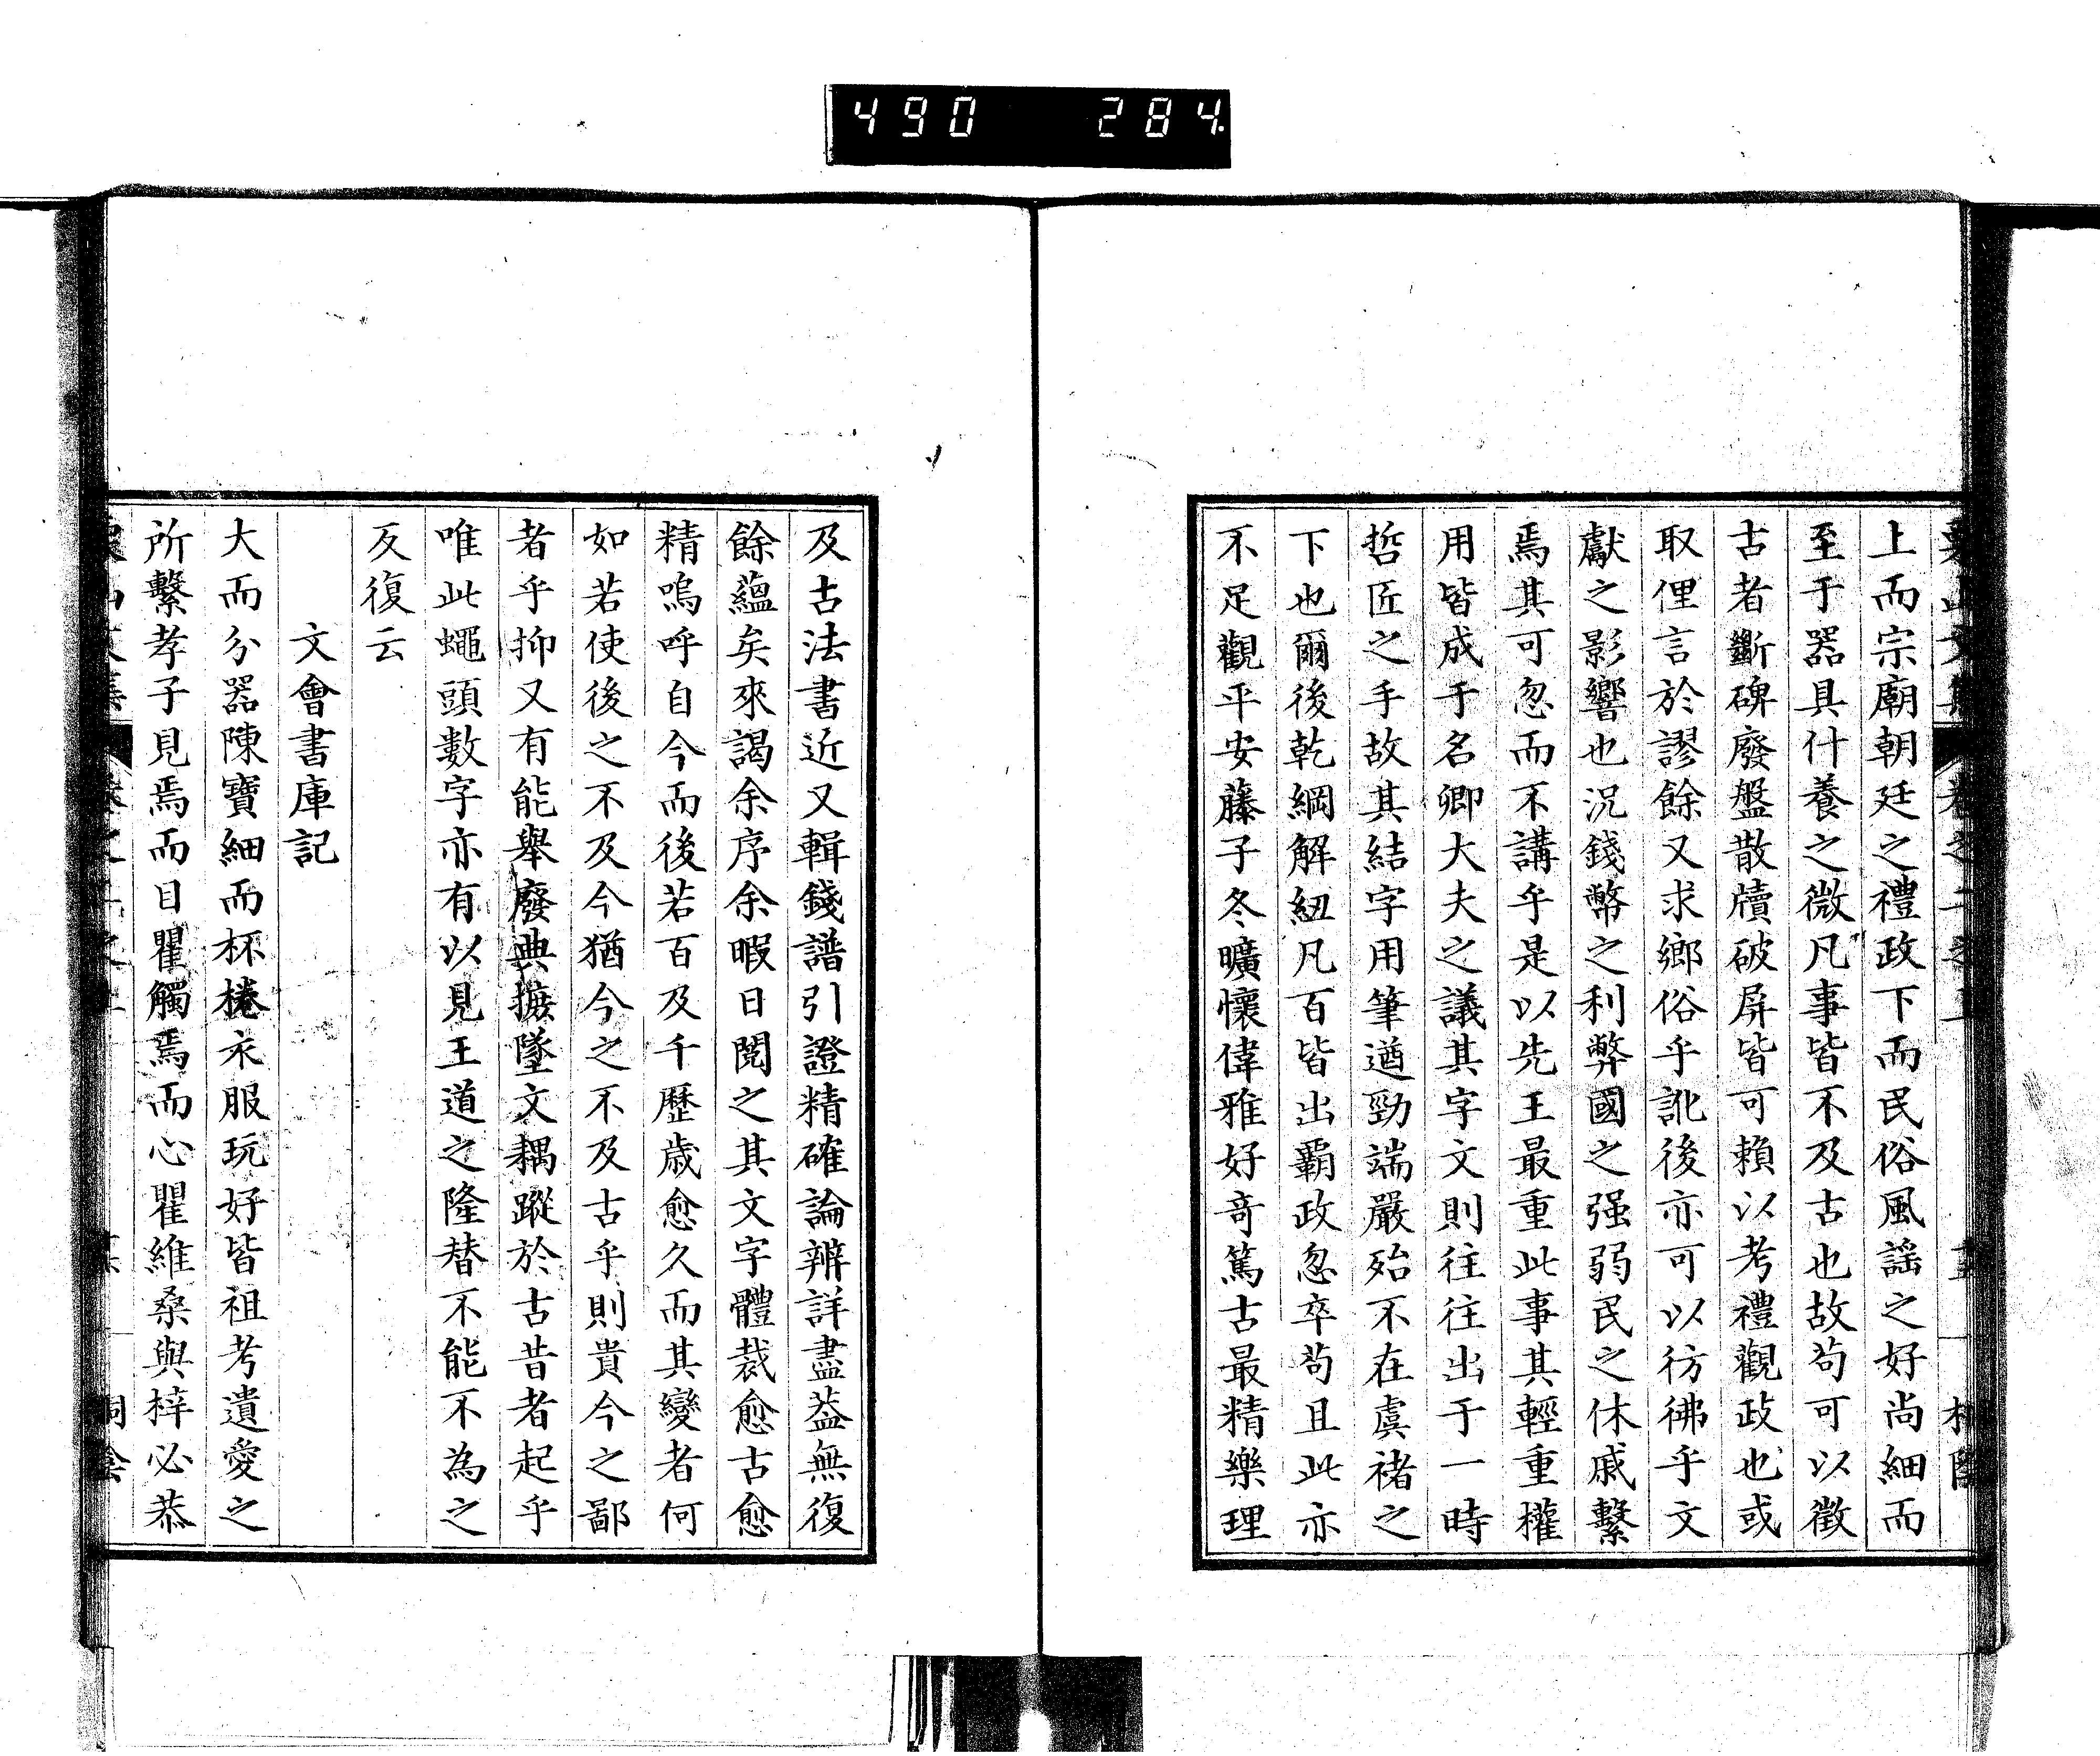 490 284.
上而宗廟朝廷之禮政下而民俗風謡之好尚細而
至于器具什養之微凡事皆不及古也故苟可以徴
古者斷碑廢盤散牘破屏皆可賴以考禮觀政也或
取俚言於謬餘又求鄉俗乎訛後亦可以彷彿乎文
獻之影響也況錢幣之利弊國之强弱民之休戚繫
焉其可忽而不講乎是以先王最重此事其輕重權
用皆成于名卿大夫之議其字文則往往出于一時
哲匠之手故其結字用筆遒勁端嚴殆不在虞褚之
下也爾後乾綱解紐凡百皆出覇政忽卒苟且此亦
不足觀平安藤子冬曠懷偉雅好奇篤古最精樂理
及古法書近又輯錢譜引證精確論辨詳盡葢無復
餘蘊矣來謁余序余暇日閲之其文字體裁愈古愈
精嗚呼自今而後若百及千歷歳愈久而其變者何
如若使後之不及今猶今之不及古乎則貴今之鄙
者乎抑又有能舉廢典摭墜文耦蹤於古昔者起乎
唯此蠅頭數字亦有以見王道之隆替不能不為之
反復云
文會書庫記
大而分器陳寶細而杯棬衣服玩好皆祖考遺愛之
所繫孝子見焉而目瞿觸焉而心瞿維桑與梓必恭